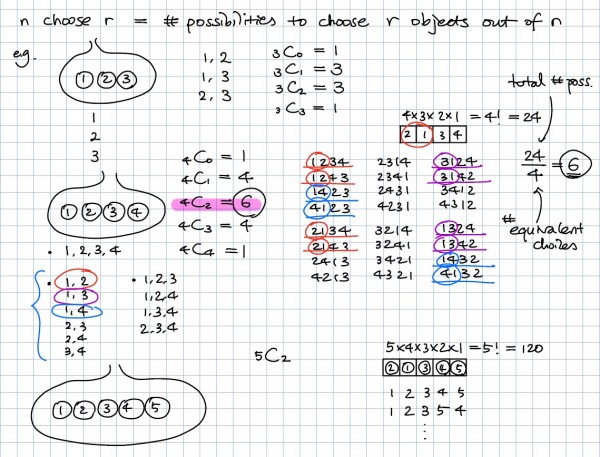 n choose r = # possibilities to choose r objects out of n
e.g.
1 2 3
1
2
3
1, 2
1, 3
2, 3
₃C₀ = 1
₃C₁ = 3
₃C₂ = 3
₃C₃ = 1
1 2 3 4
• 1, 2, 3, 4
• 1, 2
1, 3
1, 4
2, 3
2, 4
3, 4
• 1, 2, 3
1, 2, 4
1, 3, 4
2, 3, 4
₄C₀ = 1
₄C₁ = 4
₄C₂ = 6
₄C₃ = 4
₄C₄ = 1
4×3×2×1 = 4! = 24
2 1 3 4
1234 2314 3124
1243 2341 3142
1423 2431 3412
4123 4231 4312
2134 3214 1324
2143 3241 1342
2413 3421 1432
4213 4321 4132
total # poss.
24/4 = 6
# equivalent
choices
1 2 3 4 5
₅C₂
5×4×3×2×1 = 5! = 120
2 1 3 4 5
1 2 3 4 5
1 2 3 5 4
⋮